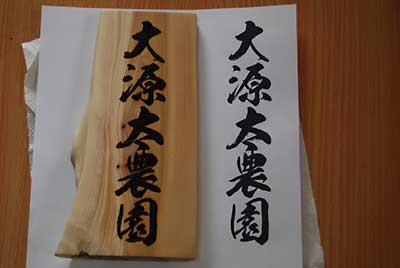 大源太農園
大源太農園